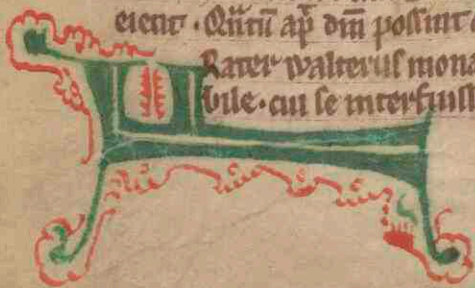 eierit · Qᷓntū ap̄ dm̄ possint
Frater Walterus mona
bile · cui se interfuiss